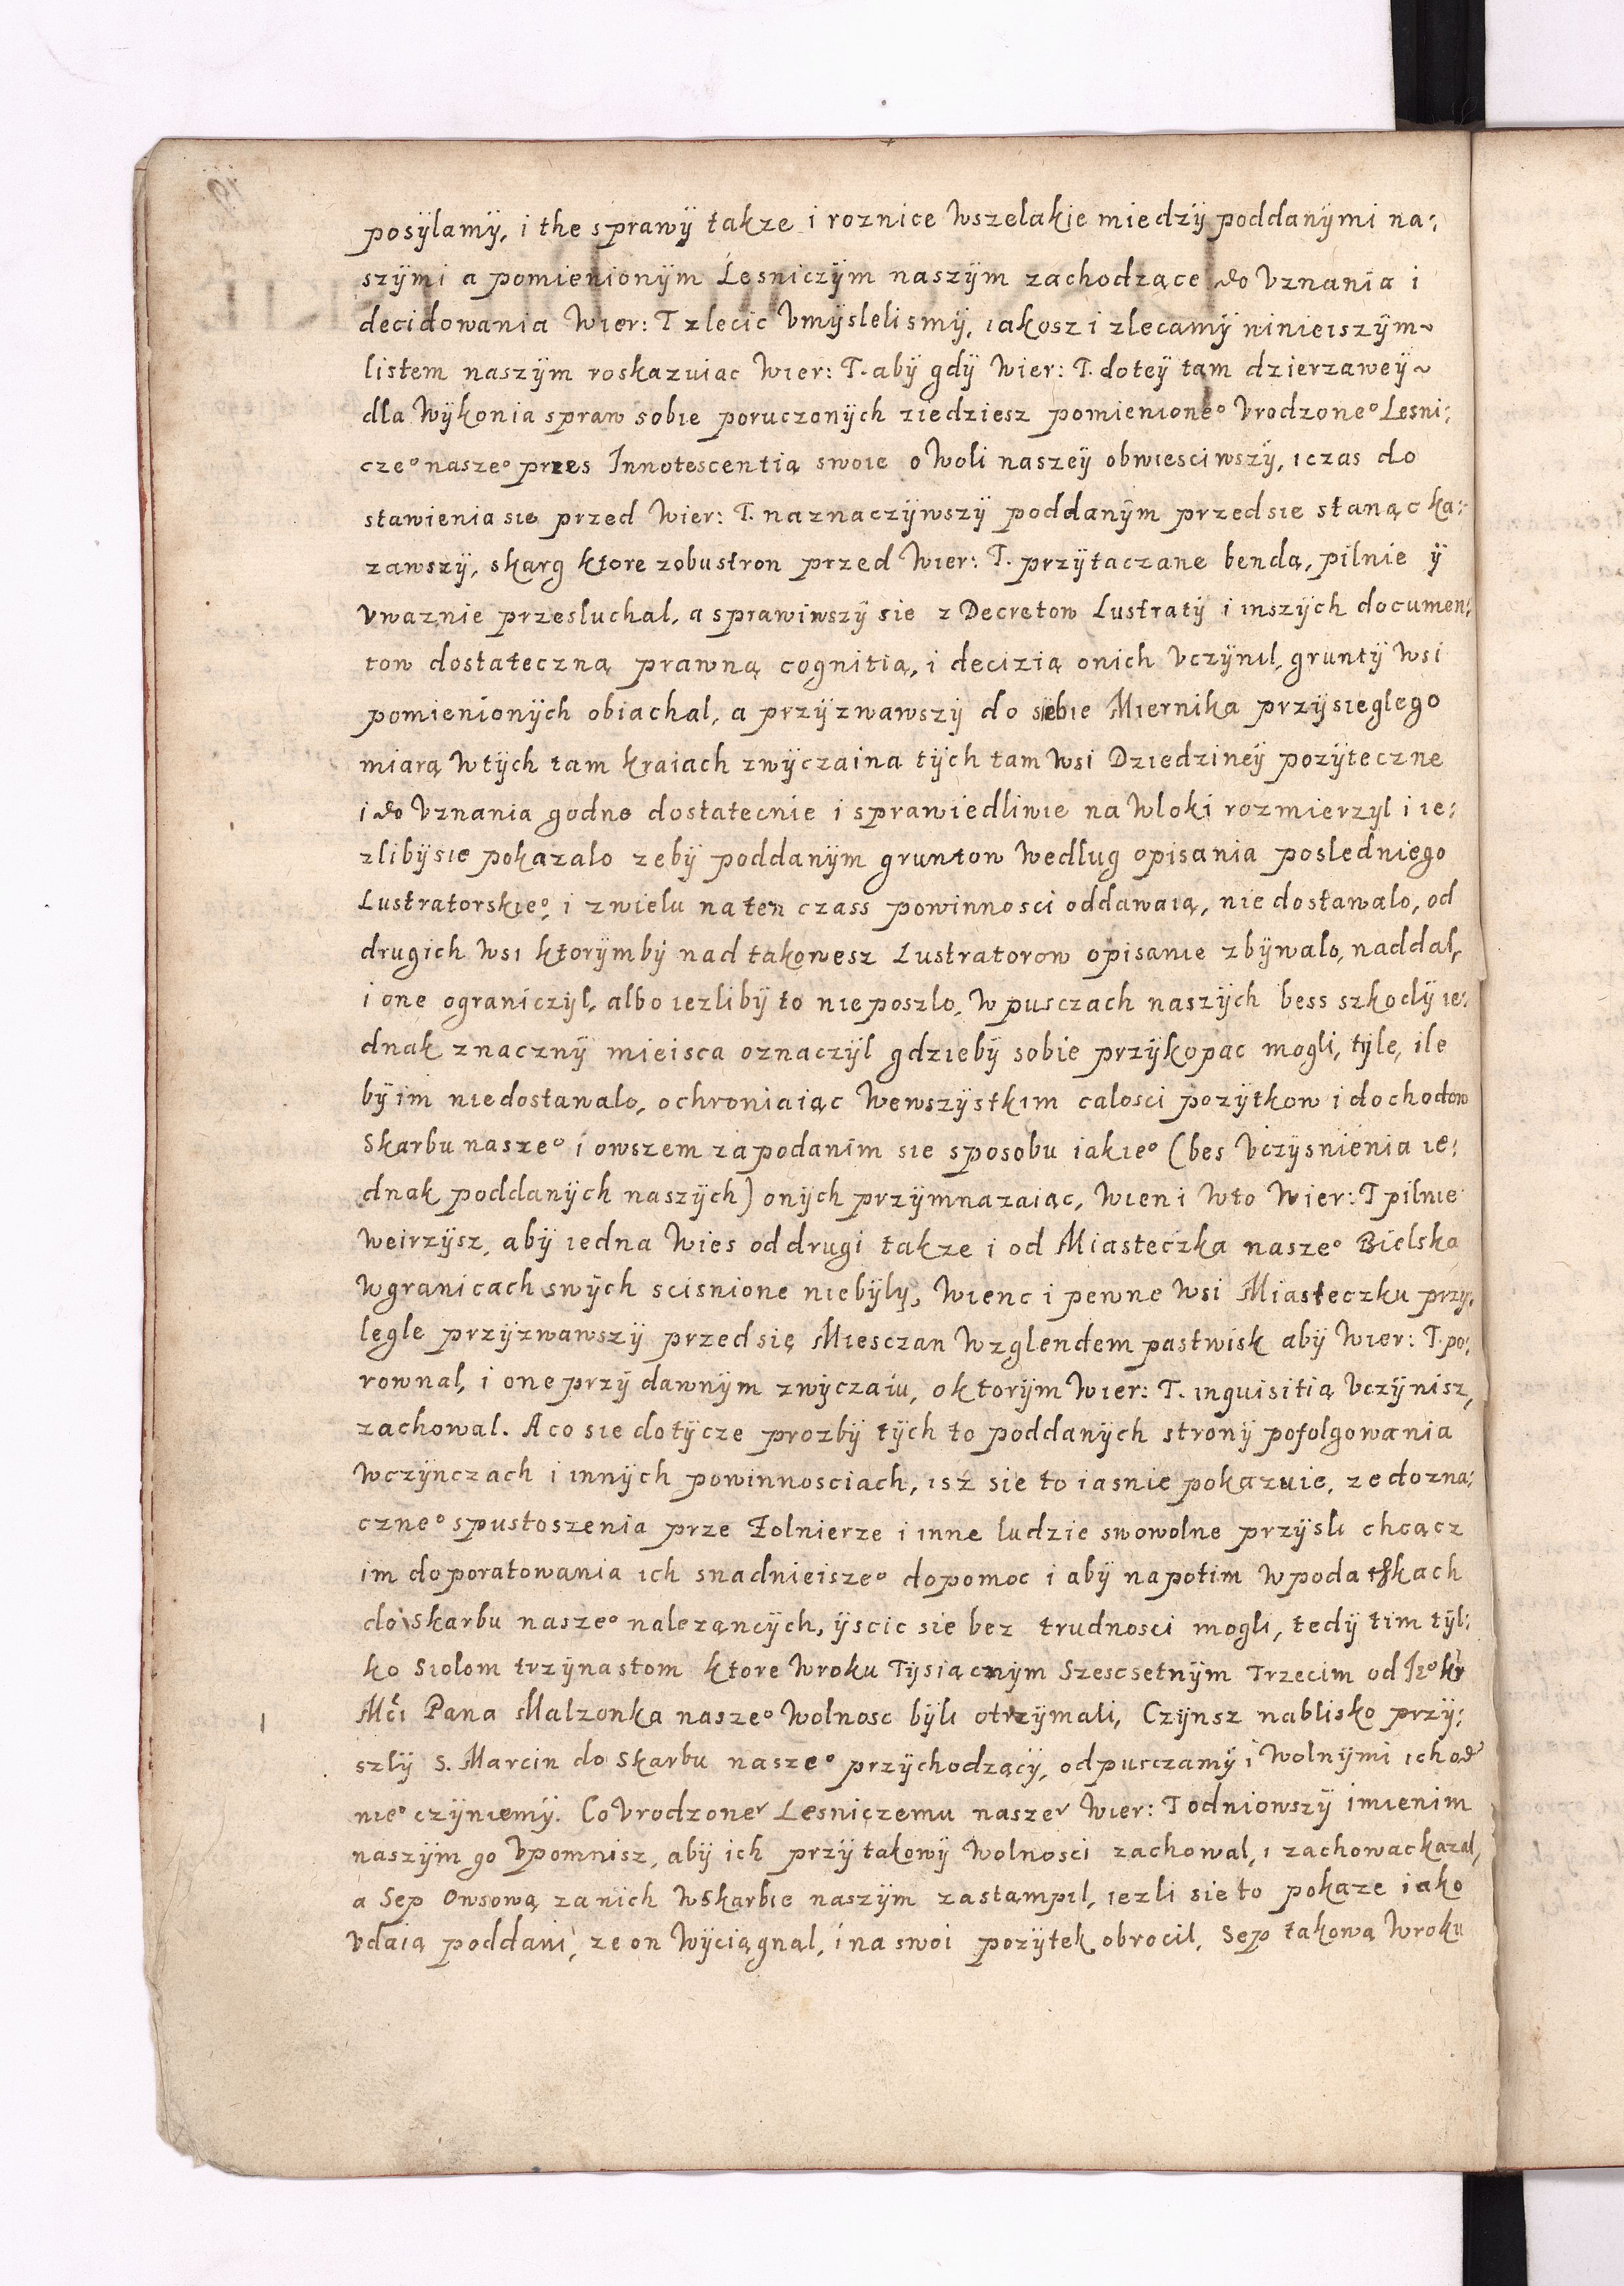 posÿlamÿ, i the sprawÿ takze i roznice Wszelakie miedzÿ poddanÿmi na:
szÿmi a pomienionÿm Lesniczÿm naszÿm zachodzące do Vznania i
decidowania Wier: T zlecic Vmÿslelismÿ, iakosz i zlecamÿ ninieiszÿm~
listem naszÿm roskazuiac Wier: T. abÿ gdÿ Wier: T. doteÿ tam dzierzaweÿ~
dla Wÿkonia spraw sobie poruczonÿch ziedziesz pomienione° Vrodzone° Lesni:
cze° nasze° przes Innotescentią swoie o Woli naszeÿ obwiesciwszÿ, i czas do
stawienia sie przed Wier: T. naznaczÿwszÿ poddanÿm przedsie stanąc ka:
zawszÿ, skarg ktore zobustron przed Wier: T. przÿtaczane bendą, pilnie ÿ
Vwaznie przesluchal, a sprawiwszÿ sie z Decretow Lustratÿ i inszÿch documen:
tow dostateczną prawną cognitią, i decizią onich Vczÿnil, gruntÿ Wsi
pomienionÿch obiachal, a przÿzwawszÿ do siebie Miernika przÿsieglego
miarą Wtÿch tam kraiach zwÿczaina tÿch tam Wsi Dziedzineÿ pozÿteczne
i do Vznania godne dostatecnie i sprawiedliwie na Wloki rozmierzÿl i ie:
zlibÿsie pokazalo zebÿ poddanÿm gruntow Wedlug opisania posledniego
Lustratorskie°, i zwielu na ten czass powinnosci oddawaią, nie dostawalo, od
drugich Wsi ktorÿmbÿ nad takowesz Lustratorow opisanie zbÿwalo, naddal,
i one ograniczÿl, albo iezlibÿ to nie poszlo, W pusczach naszÿch bess szkodÿ ie:
dnak znacznÿ mieisca oznaczÿl gdziebÿ sobie przÿkopac mogli, tÿle, ile
bÿ im niedostawalo, ochroniaiąc Wewszÿstkim calosci pozÿtkow i dochodow
Skarbu nasze° i owszem zapodanim sie sposobu iakie° (bes Vczÿsnienia ie:
dnak poddanÿch naszÿch) onÿch przÿmnazaiąc, Wien i Wto Wier: T pilnie
Weirzÿsz, abÿ iedna Wies od drugi takze i od Miasteczka nasze° Bielska
Wgranicach swÿch scisnione niebÿlÿ, Wienc i pewne Wsi Miasteczku przÿ:
legle przÿzwawszÿ przed się Miesczan Wzglendem pastwisk abÿ Wier: T. po:
rownal, i one przÿ dawnÿm zwÿczaiu, oktorÿm Wier: T. inquisitią Vczÿnisz,
zachowal. A co sie dotÿcze prozbÿ tÿch to poddanÿch stronÿ pofolgowania
Wczÿnczach i innÿch powinnosciach, isz sie to iasnie pokazuie, ze dozna:
czne° spustoszenia prze Zolnierze i inne ludzie swowolne przÿsli chcącz
im do poratowania ich snadnieisze° dopomoc i abÿ napotim W podatkach
do Skarbu nasze° nalezącÿch, ÿscic sie bez trudnosci mogli, tedÿ tim tÿl:
ko siolom trzÿnastom ktore Wroku Tÿsiącnÿm Szescsetnÿm Trzecim od Je° kr
Mci Pana Malzonka nasze° Wolnosc bÿli otrzÿmali, Czÿnsz nablisko przÿ:
szlÿ S. Marcin do Skarbu nasze° przÿchodzącÿ, odpusczamÿ i Wolnÿmi ich od
nie° czÿniemÿ. Co Vrodzoner Lesniczemu naszer Wier: T odniowszÿ imienim
naszÿm go Vpomnisz, abÿ ich przÿ takowÿ Wolnosci zachowal, i zachowac kazal,
a Sep Owsową za nich WSkarbie naszÿm zastampil, iezli sie to pokaze iako
Vdaią poddani, ze on Wÿciągnal, i na swoi pozÿtek obrocil, Sep takową Wroku